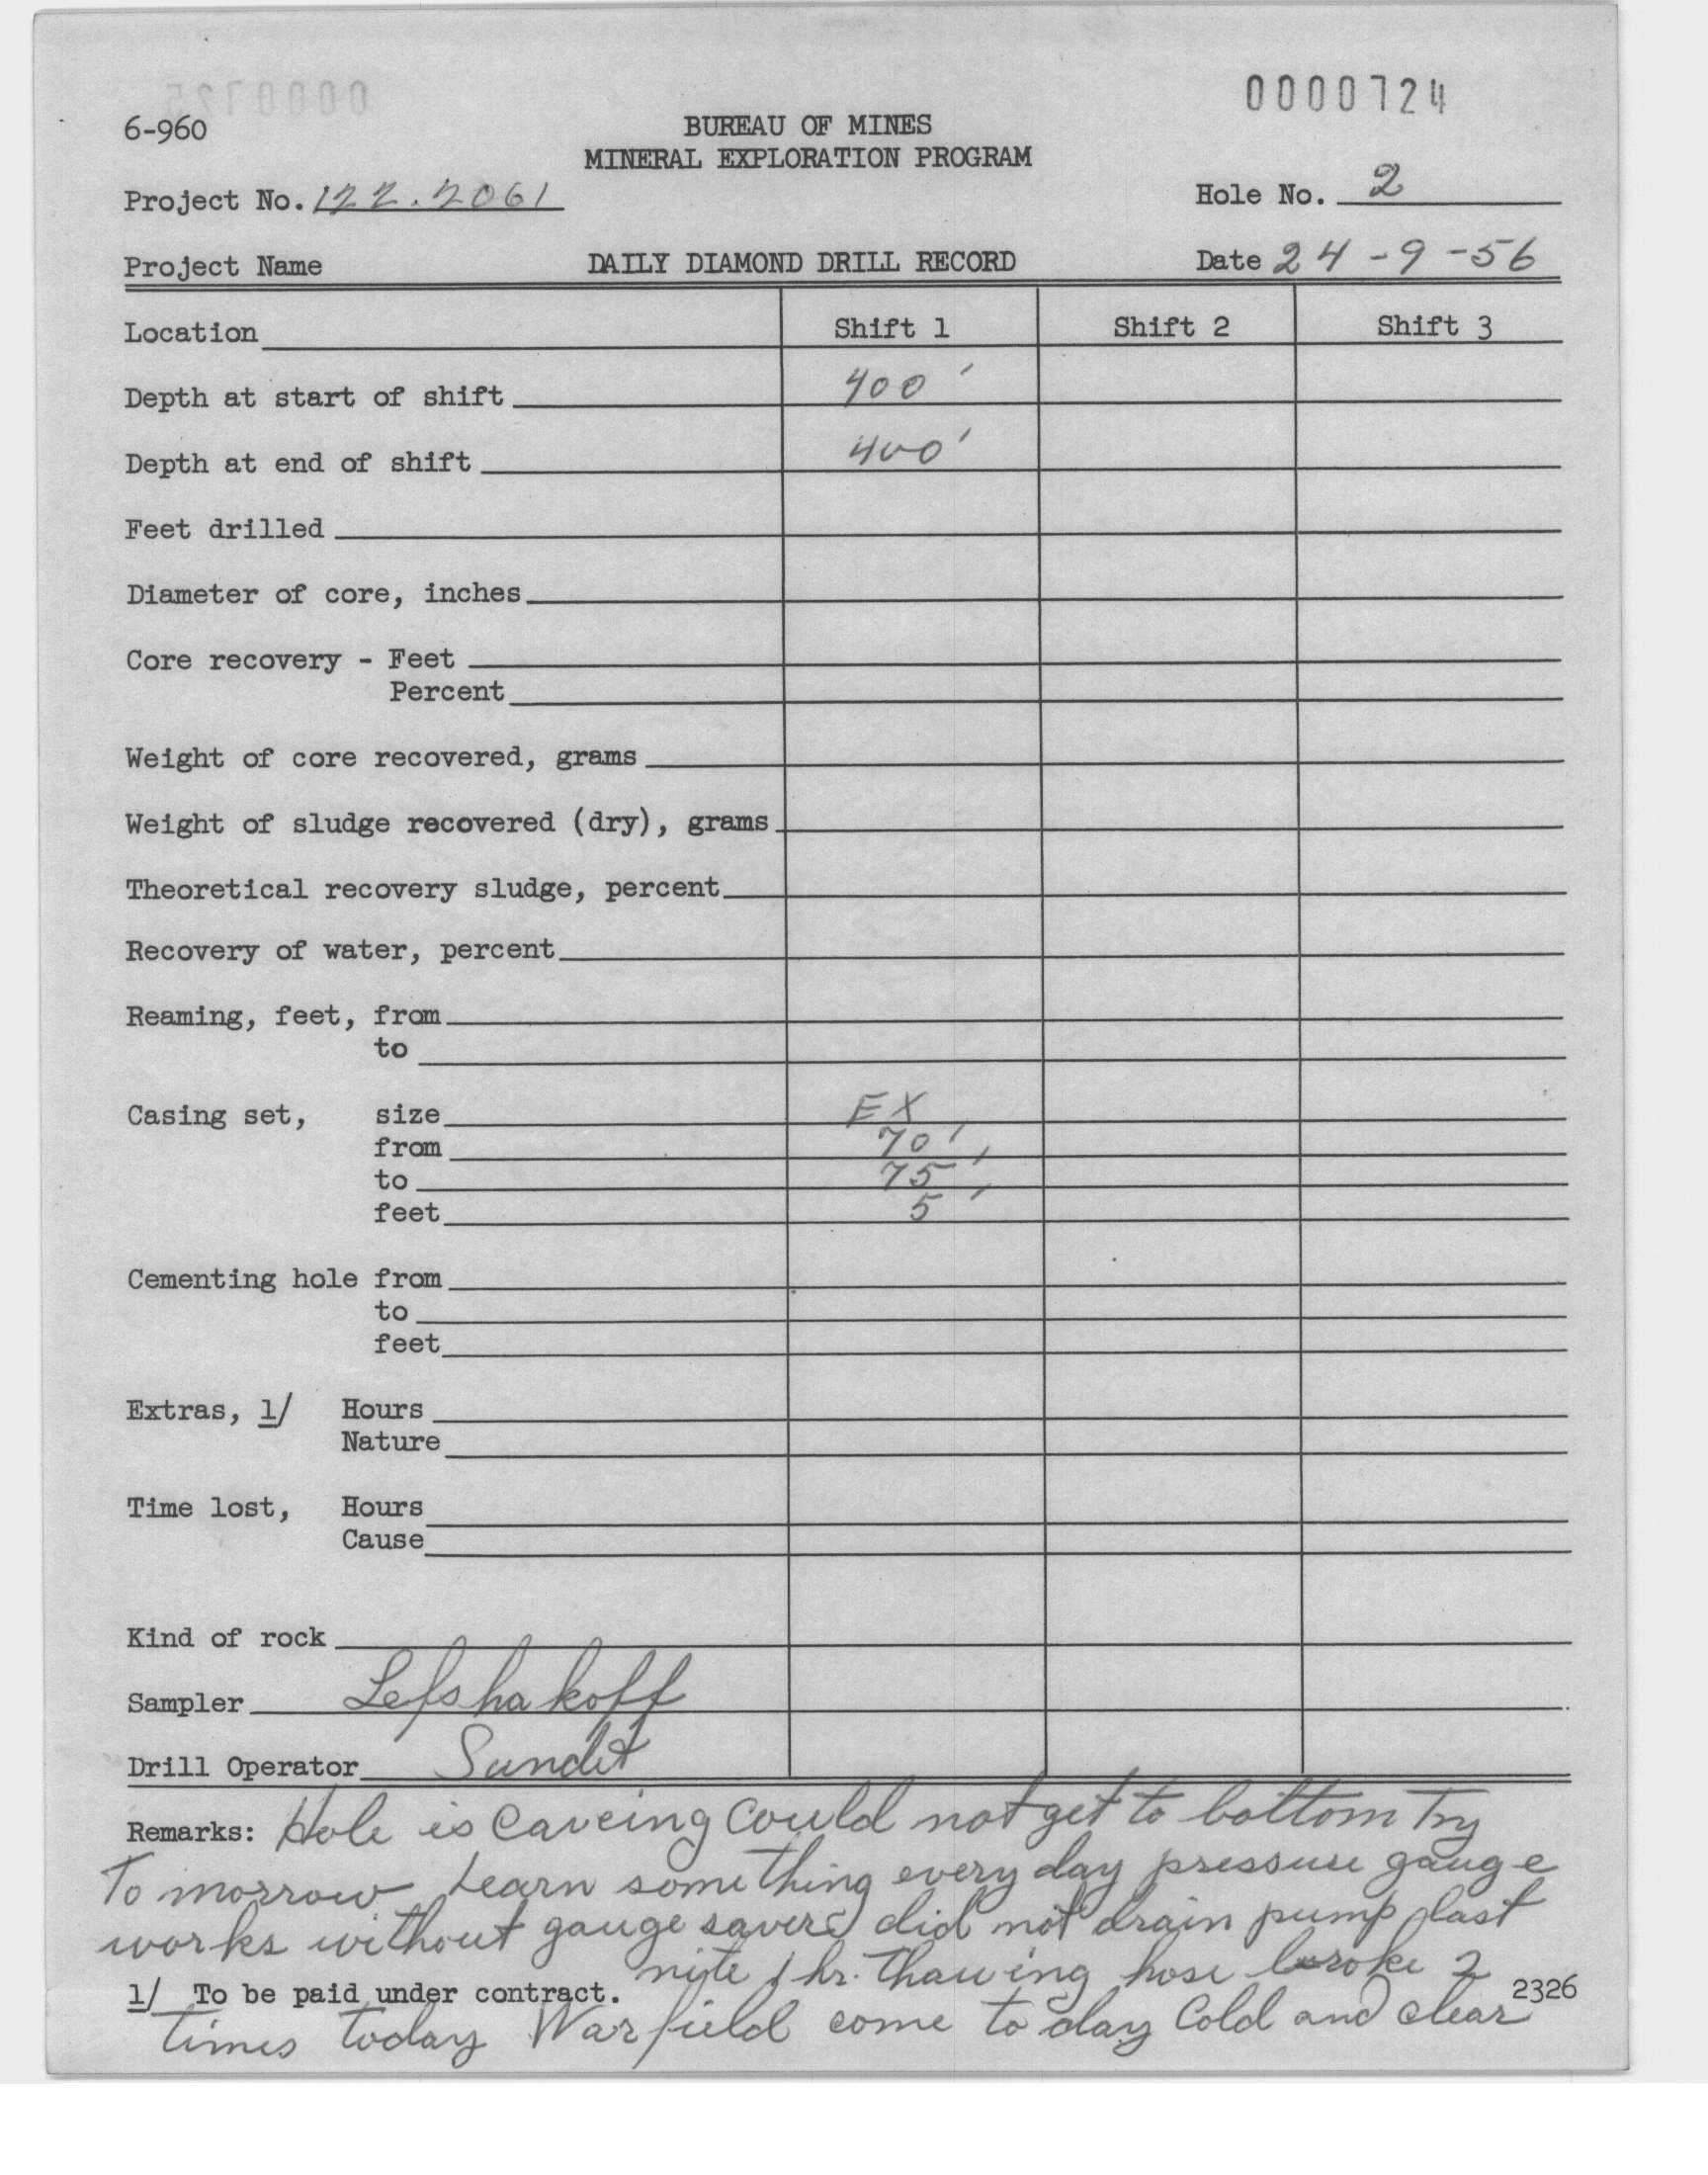 0000724
6-960
BUREAU OF MINES
MINERAL EXPLORATION PROGRAM
Project No. 122.2061
Hole No. 2
Project Name
DAILY DIAMOND DRILL RECORD
Date 24-9-56
Location Shift 1 Shift 2 Shift 3
Depth at start of shift 400'
Depth at end of shift 400'
Feet drilled
Diameter of core, inches
Core recovery - Feet
Percent
Weight of core recovered, grams
Weight of sludge recovered (dry), grams
Theoretical recovery sludge, percent
Recovery of water, percent
Reaming, feet, from
to
Casing set, size EX
from 70'
to 75'
feet 5'
Cementing hole from
to
feet
Extras, 1/ Hours
Nature
Time lost, Hours
Cause
Kind of rock
Sampler Lefshakoff
Drill Operator
Remarks: Hole is caveing could not get to bottom Try
To morrow Learn something every day pressure gauge
works without gauge savers did not drain pump last
nite 1 hr. Thawing hose broke 2
1/ To be paid under contract. 2326
times today Warfield come to day Cold and clear